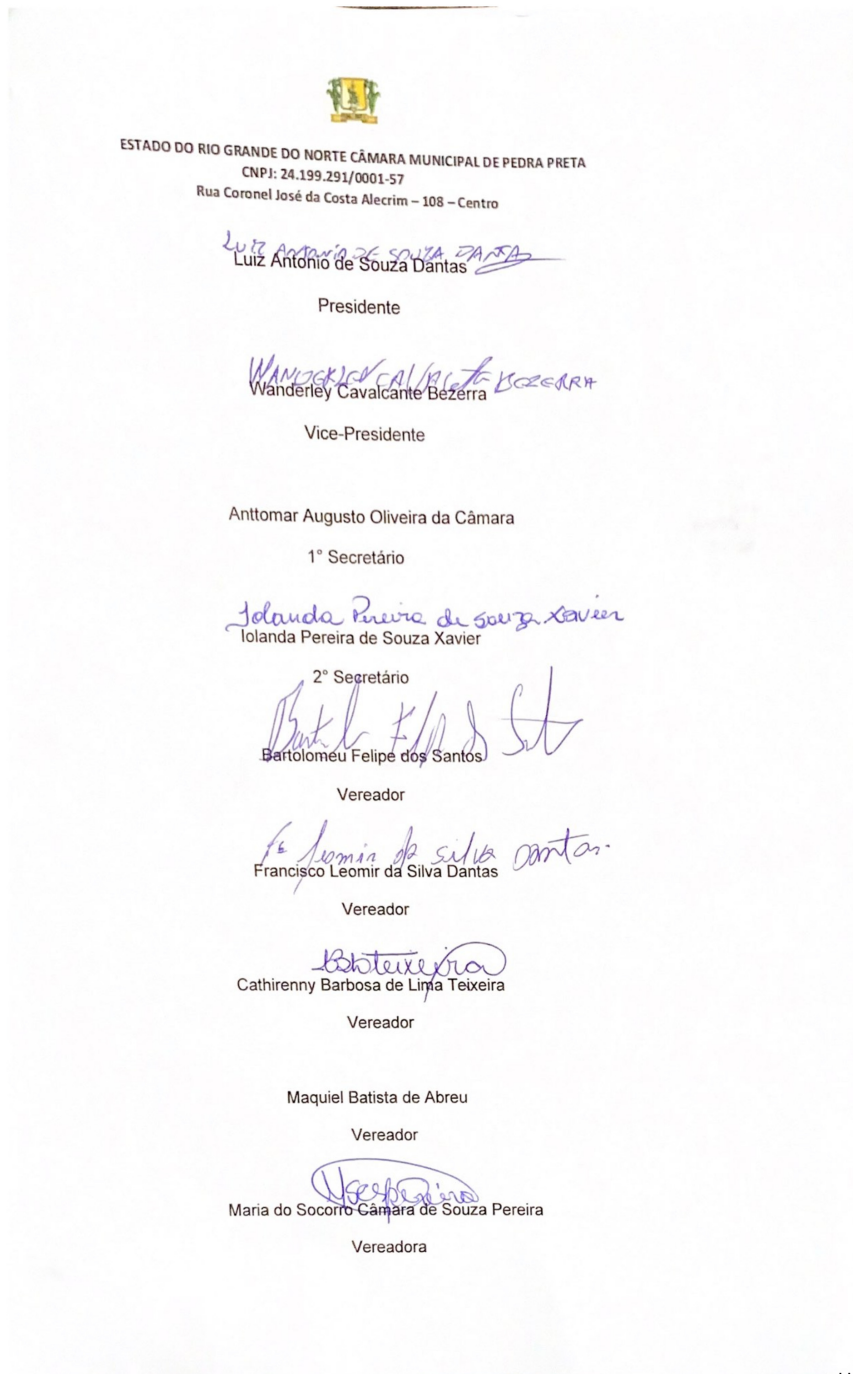 ESTADO DO RIO GRANDE DO NORTE CÂMARA MUNICIPAL DE PEDRA PRETA
CNPJ: 24.199.291/0001-57
Rua Coronel José da Costa Alecrim – 108 – Centro
LUIZ ANTONIO DE SOUZA DANTAS
Luiz Antonio de Souza Dantas
Presidente
WANDERLEY CAVALCANTE BEZERRA
Wanderley Cavalcante Bezerra
Vice-Presidente
Anttomar Augusto Oliveira da Câmara
1° Secretário
Iolanda Pereira de Souza Xavier
Iolanda Pereira de Souza Xavier
2° Secretário
Bartolomeu Felipe dos Santos
Vereador
Fc Leomir da silva Dantas
Francisco Leomir da Silva Dantas
Vereador
Cathirenny Barbosa de Lima Teixeira
Vereador
Maquiel Batista de Abreu
Vereador
Maria do Socorro Câmara de Souza Pereira
Vereadora